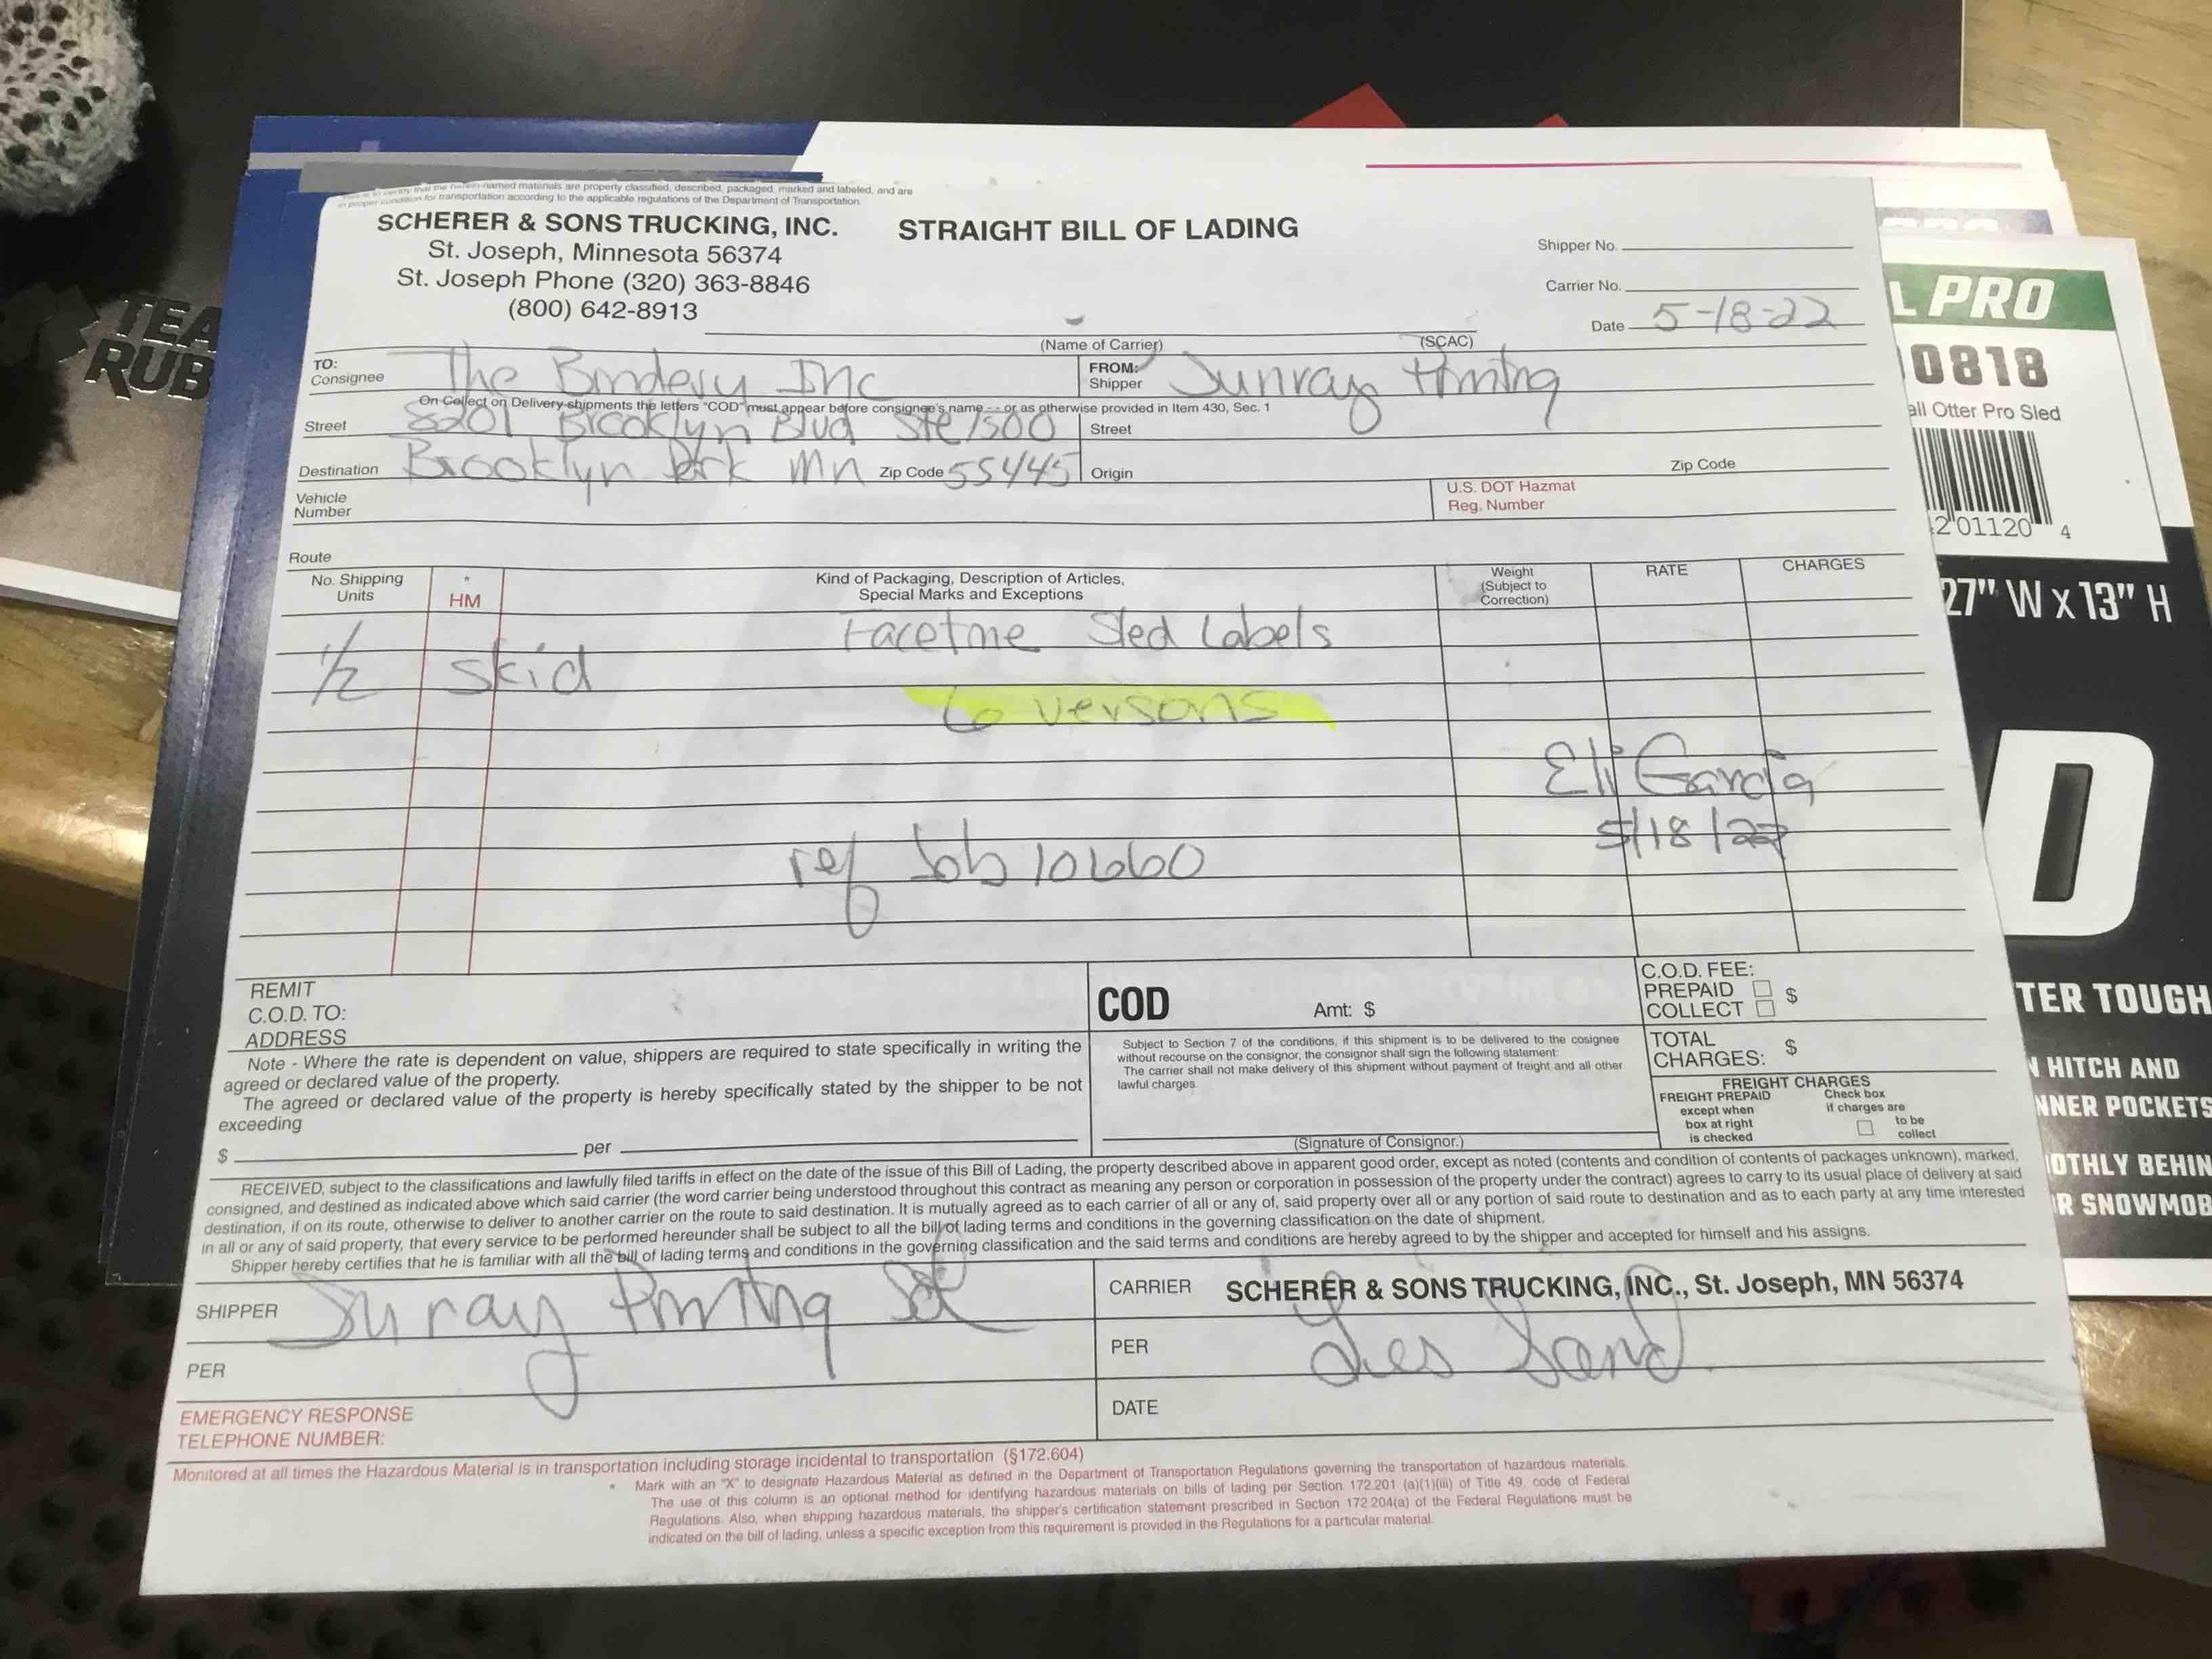 This is to certify that the herein-named materials are properly classified, described, packaged, marked and labeled, and are
in proper condition for transportation according to the applicable regulations of the Department of Transportation.
SCHERER & SONS TRUCKING, INC.
St. Joseph, Minnesota 56374
St. Joseph Phone (320) 363-8846
(800) 642-8913
STRAIGHT BILL OF LADING
Shipper No.
Carrier No.
Date 5-18-22
(Name of Carrier) (SCAC)
TO:
Consignee The Bindery Inc
FROM:
Shipper Sunray Printing
On Collect on Delivery shipments the letters "COD" must appear before consignee's name - - or as otherwise provided in Item 430, Sec. 1
Street 8201 Brooklyn Blvd Ste 1500
Street
Destination Brooklyn Park MN Zip Code 55445
Origin Zip Code
Vehicle
Number
U.S. DOT Hazmat
Reg. Number
Route
No. Shipping
Units
*
HM
Kind of Packaging, Description of Articles,
Special Marks and Exceptions
Weight
(Subject to
Correction)
RATE
CHARGES
Sled Labels
1/2 skid
6 versons
Eli Garcia
5/18/22
ref Job 10660
REMIT
C.O.D. TO:
ADDRESS
COD Amt: $
C.O.D. FEE:
PREPAID $
COLLECT
Note - Where the rate is dependent on value, shippers are required to state specifically in writing the
agreed or declared value of the property.
The agreed or declared value of the property is hereby specifically stated by the shipper to be not
exceeding
$ per
Subject to Section 7 of the conditions, if this shipment is to be delivered to the cosignee
without recourse on the consignor, the consignor shall sign the following statement:
The carrier shall not make delivery of this shipment without payment of freight and all other
lawful charges.
(Signature of Consignor.)
TOTAL
CHARGES: $
FREIGHT CHARGES
FREIGHT PREPAID
except when
box at right
is checked
Check box
if charges are
to be
collect
RECEIVED, subject to the classifications and lawfully filed tariffs in effect on the date of the issue of this Bill of Lading, the property described above in apparent good order, except as noted (contents and condition of contents of packages unknown), marked,
consigned, and destined as indicated above which said carrier (the word carrier being understood throughout this contract as meaning any person or corporation in possession of the property under the contract) agrees to carry to its usual place of delivery at said
destination, if on its route, otherwise to deliver to another carrier on the route to said destination. It is mutually agreed as to each carrier of all or any of, said property over all or any portion of said route to destination and as to each party at any time interested
in all or any of said property, that every service to be performed hereunder shall be subject to all the bill of lading terms and conditions in the governing classification on the date of shipment.
Shipper hereby certifies that he is familiar with all the bill of lading terms and conditions in the governing classification and the said terms and conditions are hereby agreed to by the shipper and accepted for himself and his assigns.
SHIPPER Sunray Printing
PER
CARRIER SCHERER & SONS TRUCKING, INC., St. Joseph, MN 56374
PER Les Sand
DATE
EMERGENCY RESPONSE
TELEPHONE NUMBER:
Monitored at all times the Hazardous Material is in transportation including storage incidental to transportation (§172.604)
* Mark with an "X" to designate Hazardous Material as defined in the Department of Transportation Regulations governing the transportation of hazardous materials.
The use of this column is an optional method for identifying hazardous materials on bills of lading per Section 172.201 (a)(1)(iii) of Title 49, code of Federal
Regulations. Also, when shipping hazardous materials, the shipper's certification statement prescribed in Section 172.204(a) of the Federal Regulations must be
indicated on the bill of lading, unless a specific exception from this requirement is provided in the Regulations for a particular material.
TEA
RUB
L PRO
0818
all Otter Pro Sled
201120 4
27" W x 13" H
D
TER TOUGH
N HITCH AND
NNER POCKETS
OTHLY BEHIN
R SNOWMOB